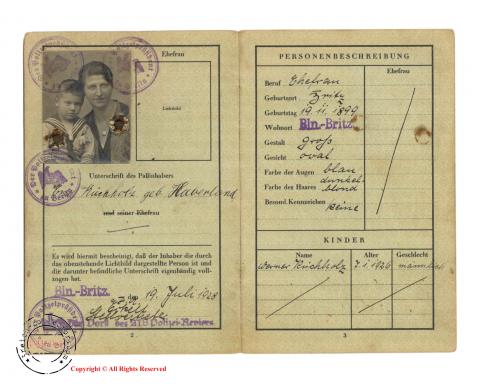 Der Polizeipräsident
in Berlin
Ehefrau
Lichtbild
Der Polizeipräsident
in Berlin
Unterschrift des Paßinhabers
Küchholz geb. Haberland
und seiner Ehefrau
Es wird hiermit bescheinigt, daß der Inhaber die durch
das obenstehende Lichtbild dargestellte Person ist und
die darunter befindliche Unterschrift eigenhändig voll-
zogen hat.
Bln.-Britz, den 19. Juli 1928
Der Polizeipräsident
des 216 Polizei-Reviers
2
Copyright © All Rights Reserved
PERSONENBESCHREIBUNG
Ehefrau
Beruf Ehefrau
Geburtsort Britz
Geburtstag 19. II. 1899
Wohnort Bln.-Britz
Gestalt groß
Gesicht oval
Farbe der Augen blau
Farbe des Haares dunkel-
blond
Besond. Kennzeichen keine
KINDER
Name Alter Geschlecht
Werner Küchholz 7.1.1926 männlich
3